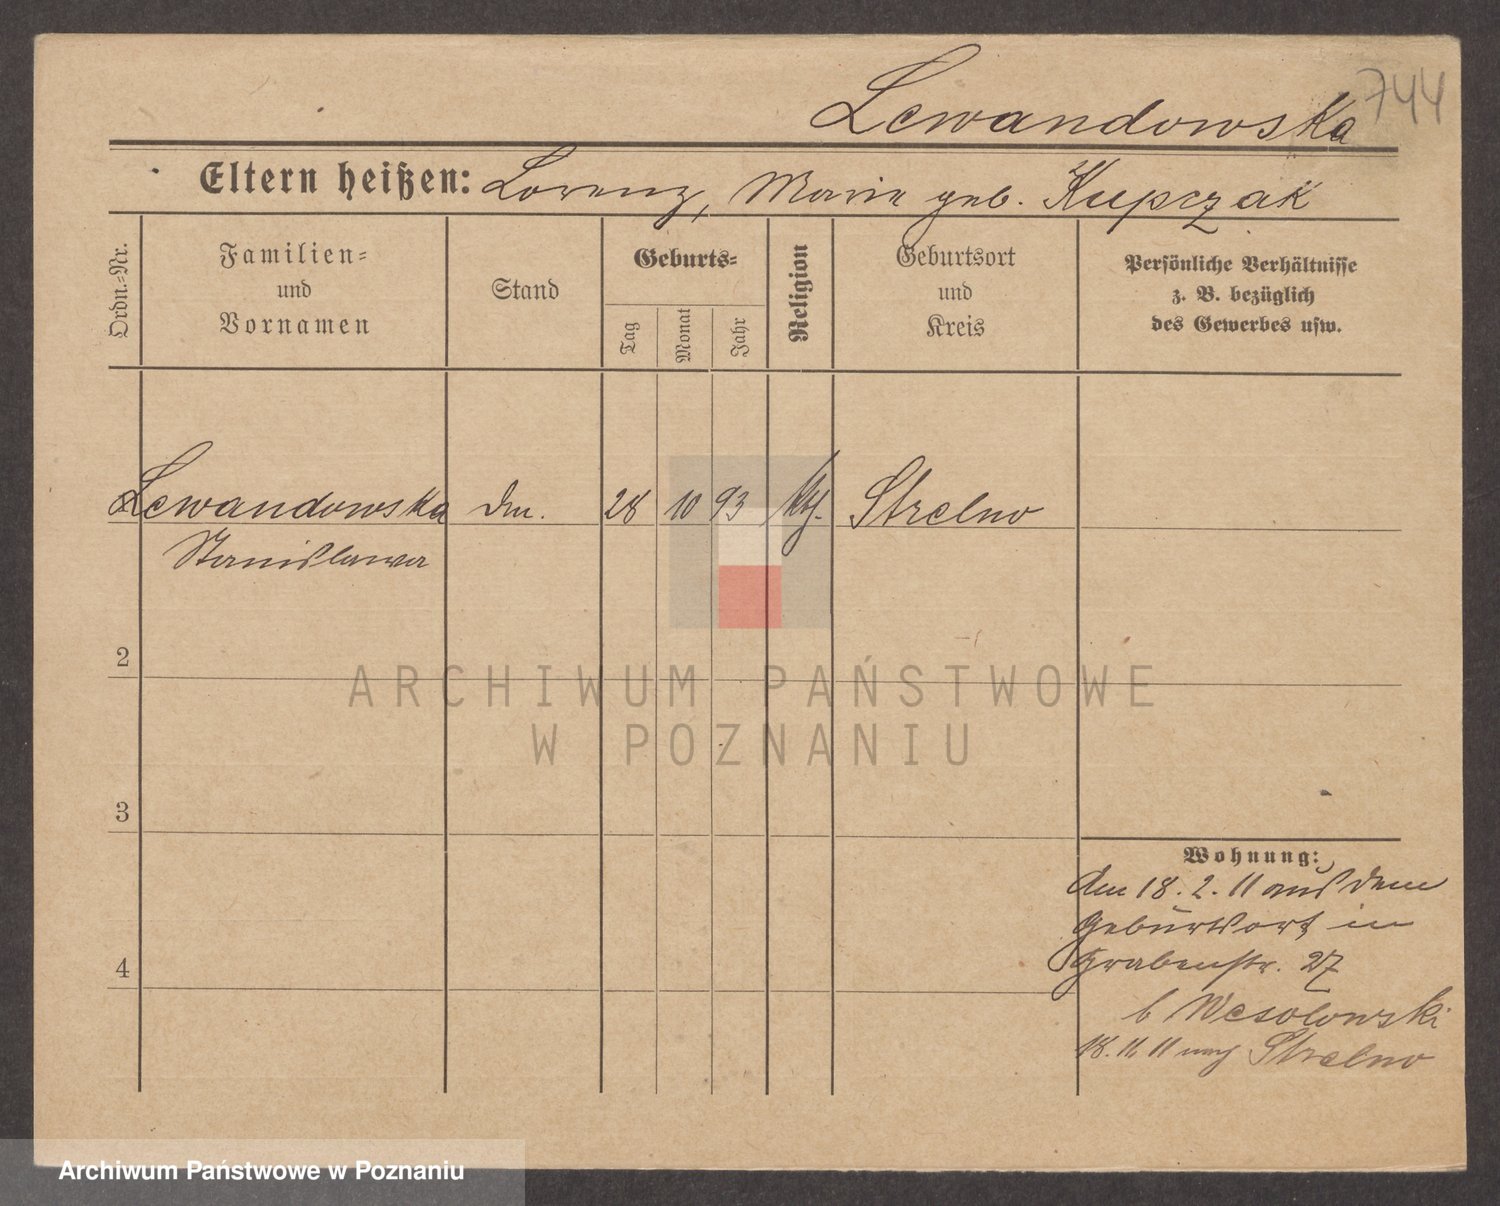 Lewandowska 744
Eltern heißen: Lorenz, Marie geb. Kupczak
Ordn.=Nr.
Familien=
und
Vornamen
Stand
Geburts=
Tag
Monat
Jahr
Religion
Geburtsort
und
Kreis
Persönliche Verhältnisse
z. B. bezüglich
des Gewerbes usw.
Lewandowska 28 10 93 kth. Strelno
Stanislawa
2
3
4
Wohnung:
Am 18.2.11 aus dem
Geburtsort in
Grabenstr. 27
b Wesolowski
18.11.11 nach Strelno
ARCHIWUM PAŃSTWOWE
W POZNANIU
Archiwum Państwowe w Poznaniu